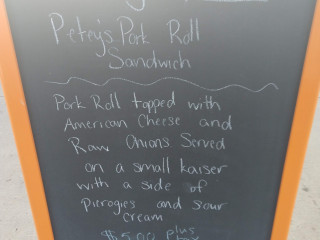 Petey's Pork Roll
Sandwich
Pork Roll topped with
American Cheese and
Raw Onions Served
on a small kaiser
with a side of
Pierogies and sour
cream
$5.00 plus
tax